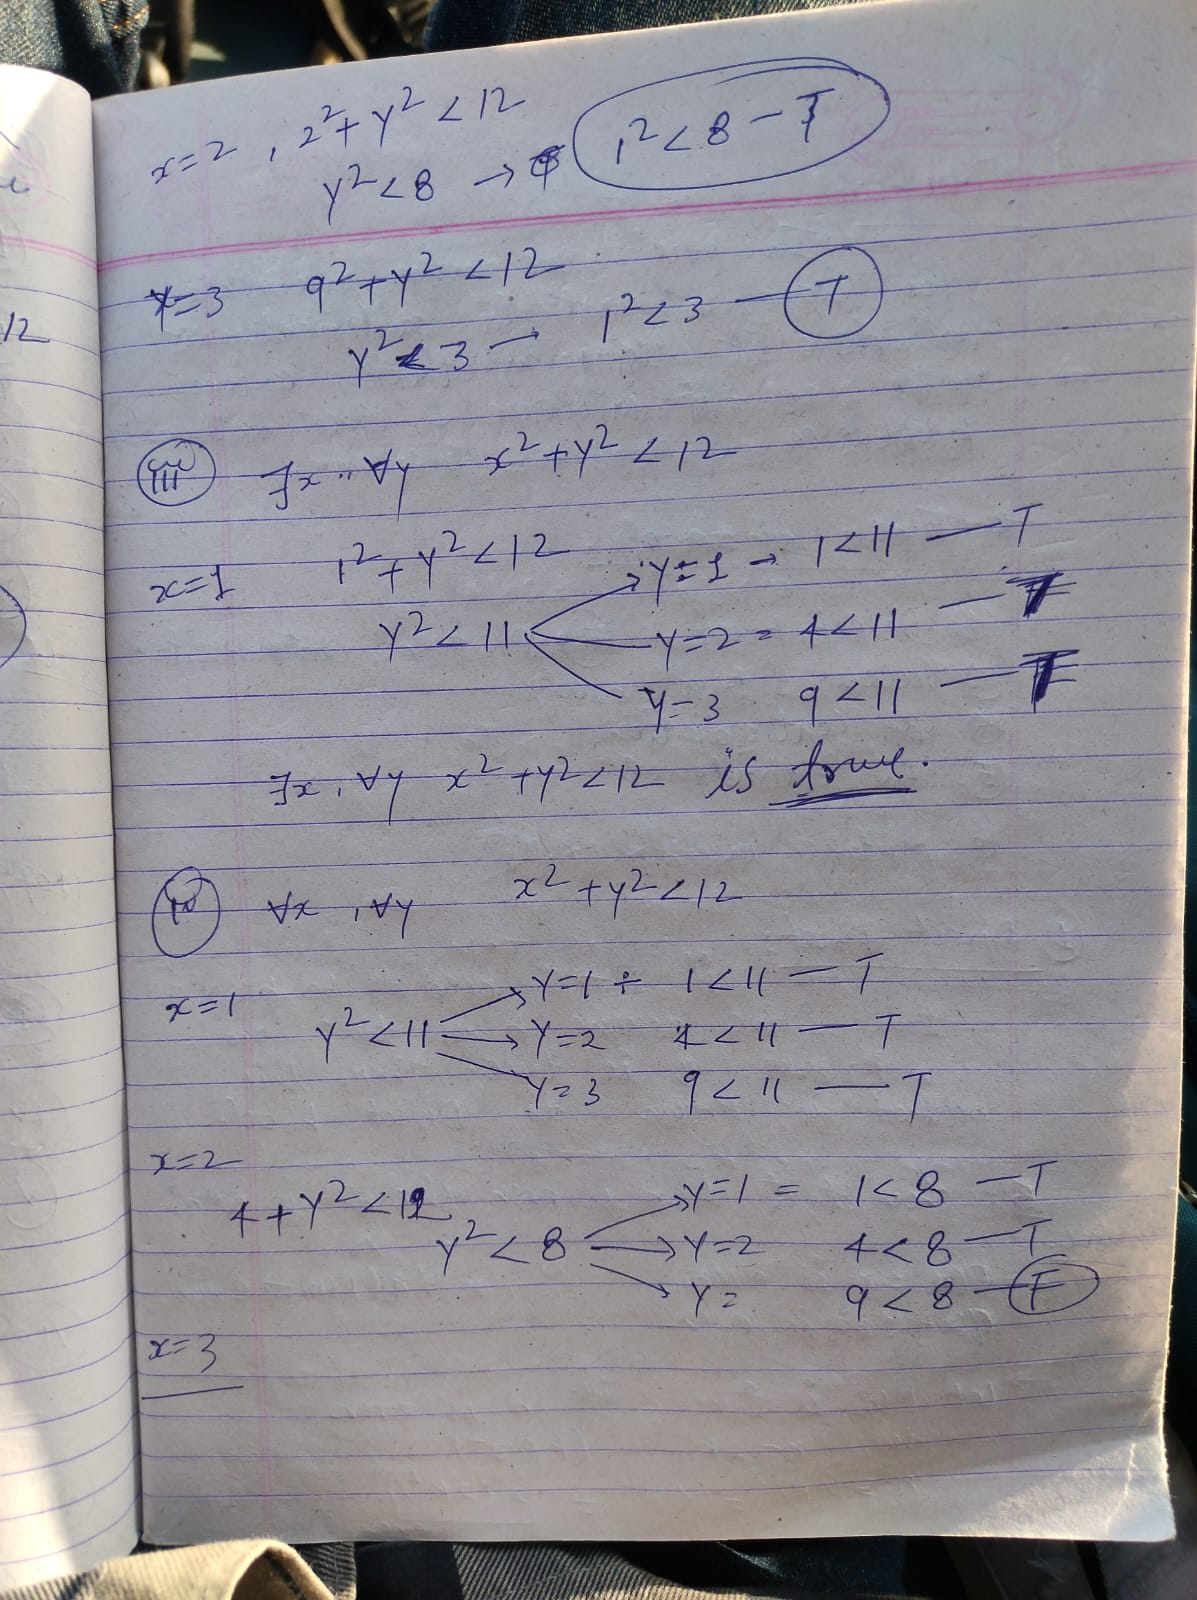 12
x=2, 2²+y² <12
y²<8 → 1²<8 – T
x=3 9²+y² <12
y²<3 – 1²<3 — T
iii ∃x, ∀y x²+y² <12
x=1 1²+y²<12
y²<11 → y=1 → 1<11 — T
y=2 = 4<11 — T
y=3 9<11 — T
∃x, ∀y x²+y²<12 is true.
∀x, ∀y x²+y²<12
x=1
y²<11 → y=1 1<11 — T
→ y=2 4<11 — T
y=3 9<11 — T
x=2
4+y²<12
y²<8 → y=1 = 1<8 – T
→ y=2 4<8 – T
→ y= 9<8 – F
x=3